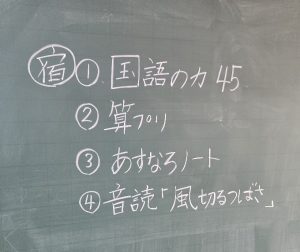 宿 ① 国語の力 45
② 算プリ
③ あすなろノート
④ 音読「風切るつばさ」